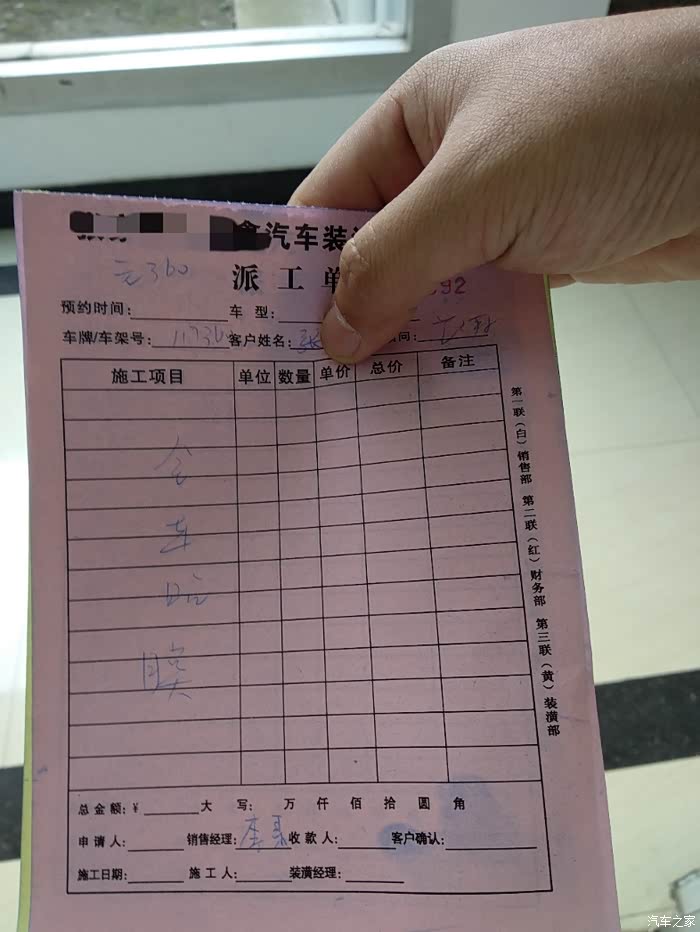 鑫汽车装
派工单
元360 892
预约时间: 车 型:
车牌/车架号: 11736 客户姓名: 张 间:
施工项目 单位 数量 单价 总价 备注
全
车
贴
膜
第一联(白)销售部 第二联(红)财务部 第三联(黄)装潢部
总金额:¥ 大 写: 万 仟 佰 拾 圆 角
申请人: 销售经理: 李 收款人: 客户确认:
施工日期: 施工人: 装潢经理:
汽车之家